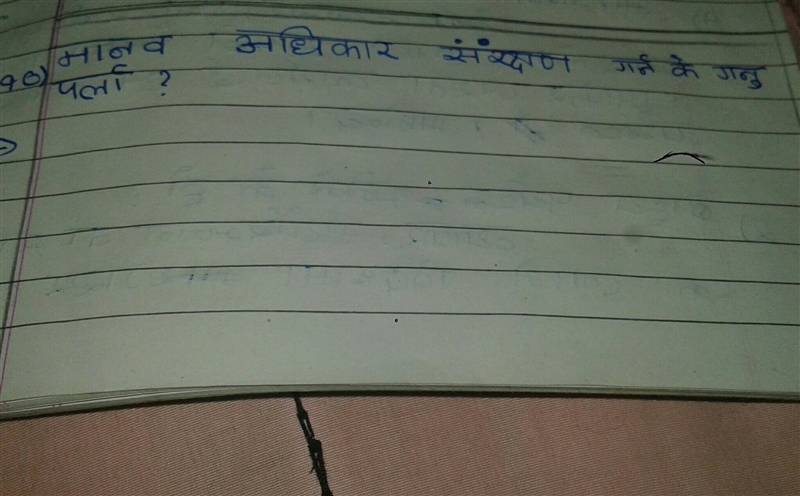 १०) मानव अधिकार संरक्षण गर्न के गनु
पर्ला ?